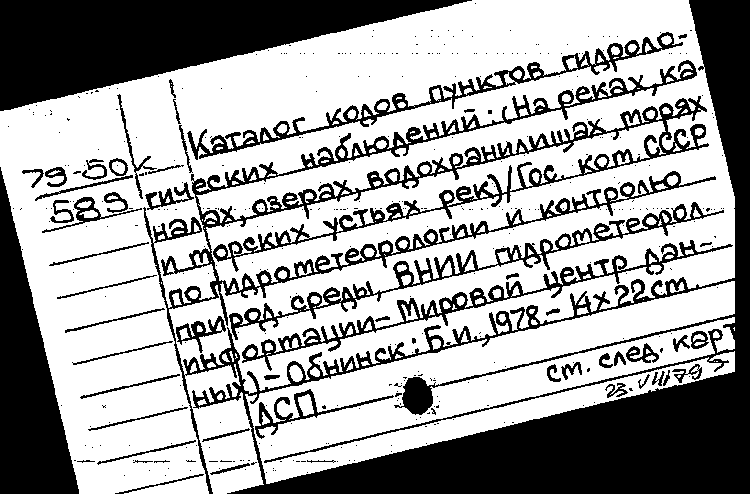 Каталог кодов пунктов гидроло-
79-50к
гических наблюдений: (На реках, ка-
589
налах, озерах, водохранилищах, морях
и морских устьях рек)/Гос. ком. СССР
по гидрометеорологии и контролю
природ. среды, ВНИИ гидрометеорол.
информации - Мировой центр дан-
ных). - Обнинск: Б.и., 1978. - 14х22см.
ДСП.
ст. след. карт
23.VIII79